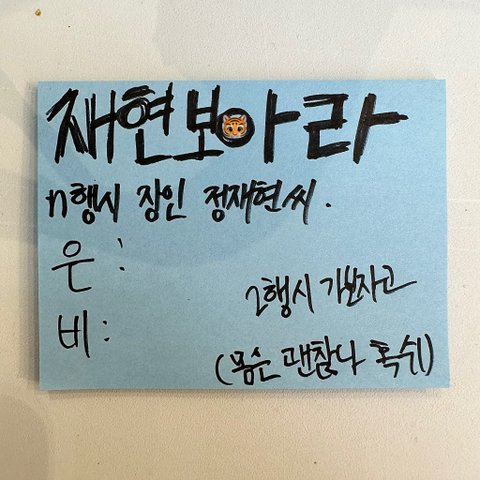 재현보아라
n행시 장인 정재현씨.
은:
비:
2행시 가보자고
(몸은 괜찮나 혹쉬)